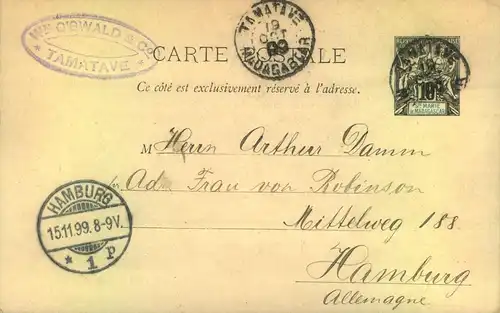 Wm O'SWALD & Co
TAMATAVE
TAMATAVE
19
OCT
99
MADAGASCAR
CARTE POSTALE
Ce côté est exclusivement réservé à l'adresse.
19
10
Ste MARIE
DE MADAGASCAR
M Herrn Arthur Damm
Ad. Frau von Robinson
Mittelweg 188.
Hamburg
Allemagne
HAMBURG
15.11.99. 8-9V.
* 1 P